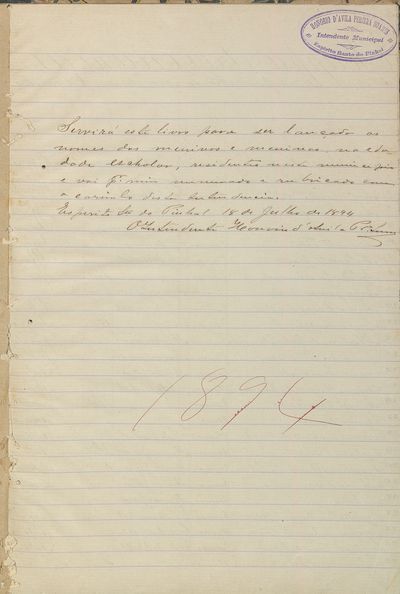 HONORIO D'AVILA PEREIRA
Intendente Municipal
Espirito Santo do Pinhal
Servirá este livro para ser lançado os
nomes dos meninos e meninas na eda
dade escholar, residentes neste municipio
e vai numerado e rubricado com
o carimbo desta Intendencia.
Espirito Sto do Pinhal 18 de Julho de 1894
O Intendente Honorio d'Avila
1894